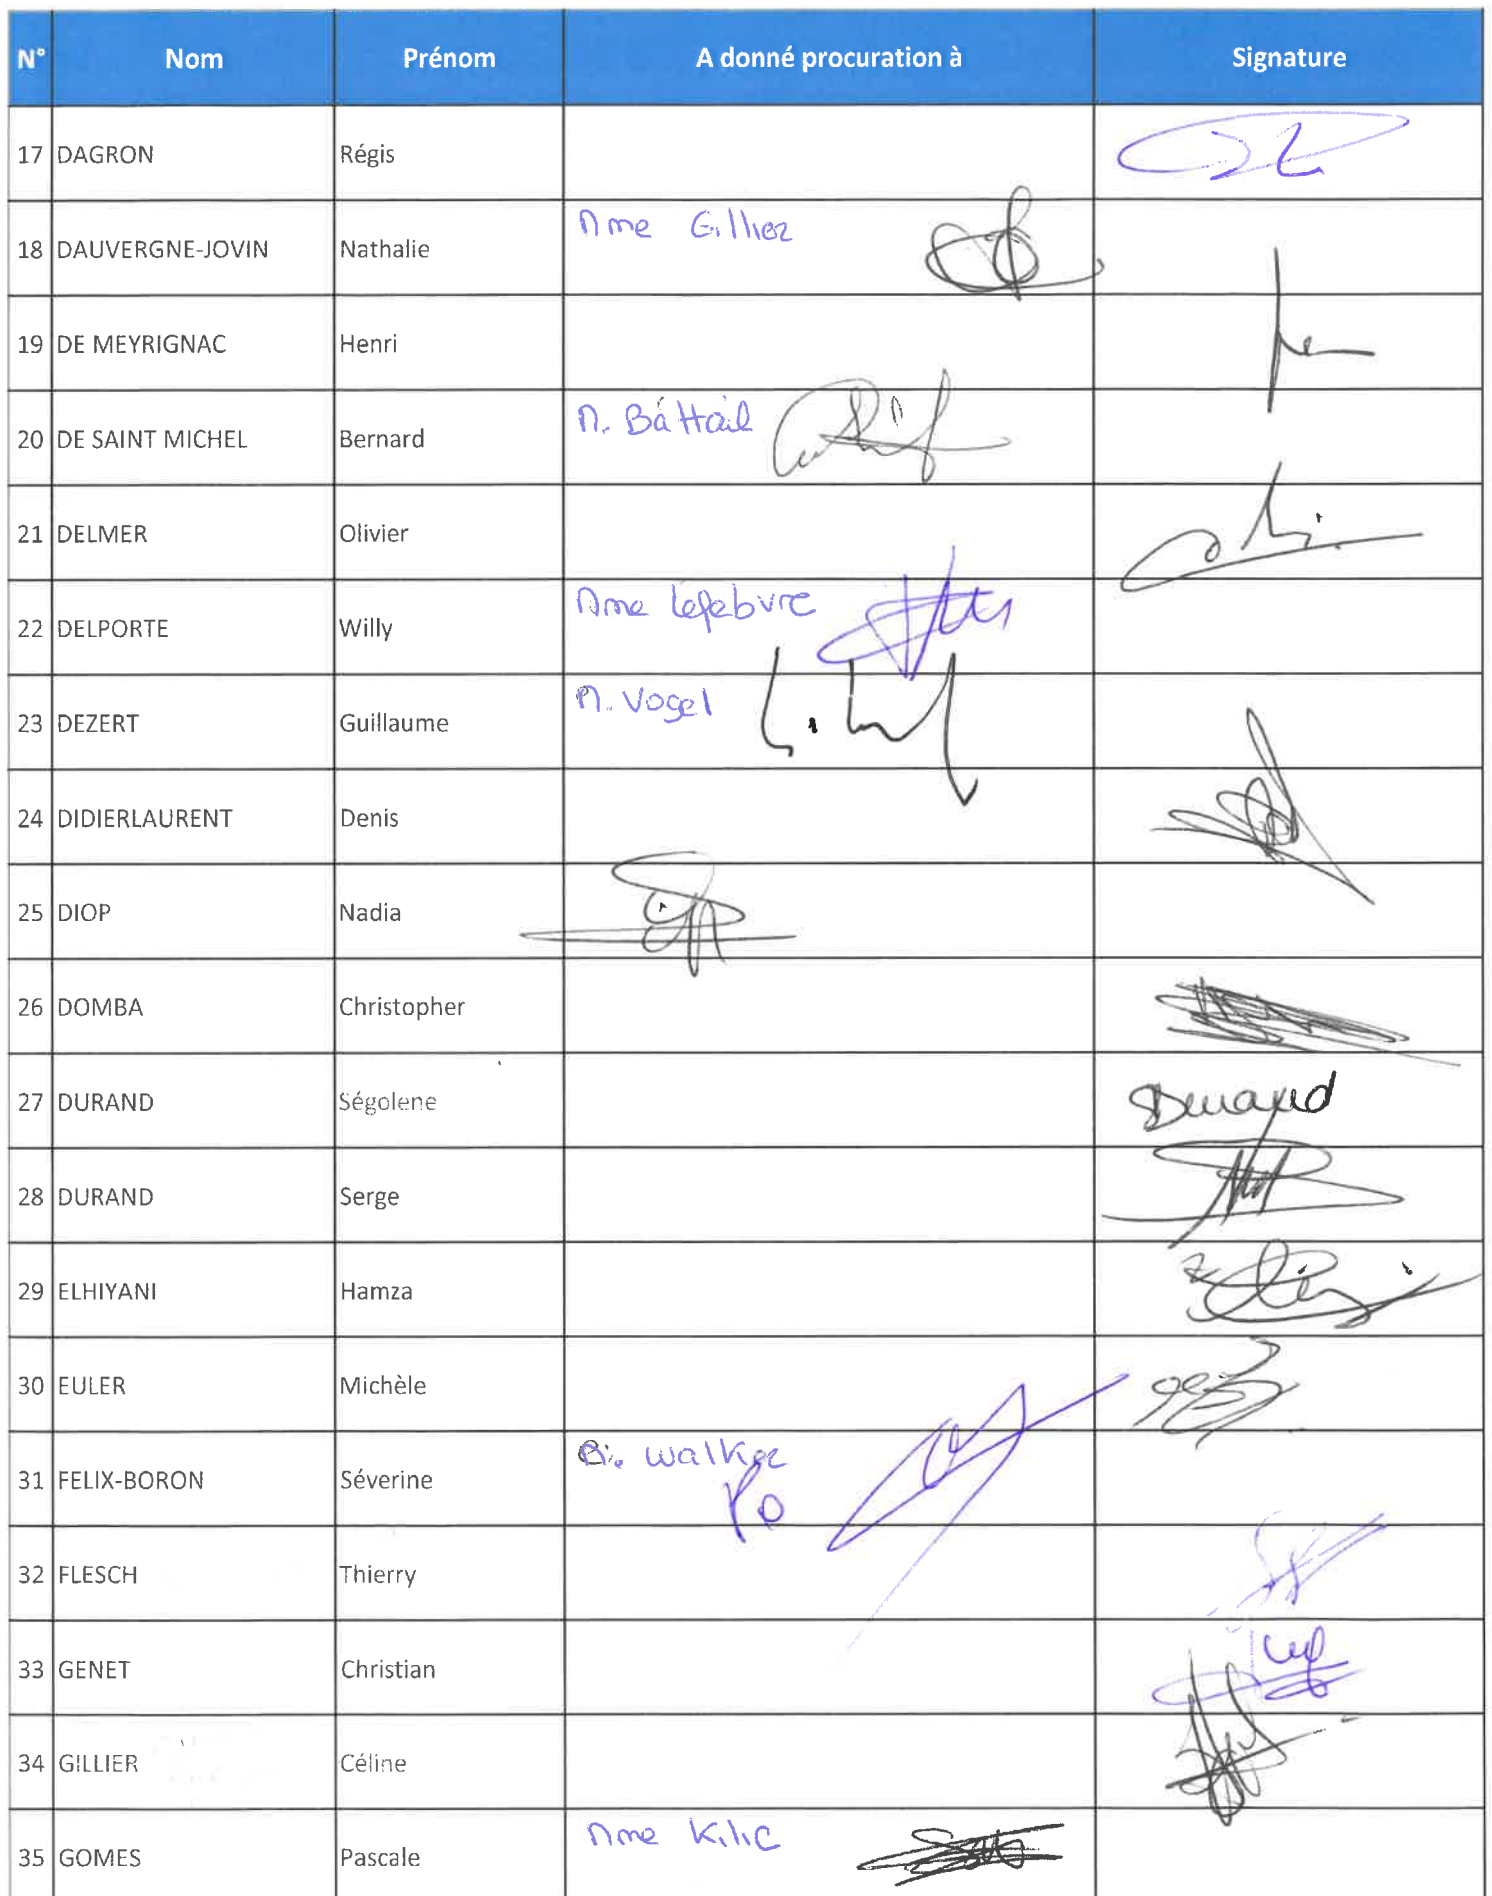 N° Nom Prénom A donné procuration à Signature
17 DAGRON Régis
18 DAUVERGNE-JOVIN Nathalie Mme Gillier
19 DE MEYRIGNAC Henri
20 DE SAINT MICHEL Bernard M. Battail
21 DELMER Olivier
22 DELPORTE Willy Mme Lefebvre
23 DEZERT Guillaume M. Vogel
24 DIDIERLAURENT Denis
25 DIOP Nadia
26 DOMBA Christopher
27 DURAND Ségolene Durand
28 DURAND Serge
29 ELHIYANI Hamza
30 EULER Michèle
31 FELIX-BORON Séverine M. Walker
Po
32 FLESCH Thierry
33 GENET Christian
34 GILLIER Céline
35 GOMES Pascale Mme Kilic